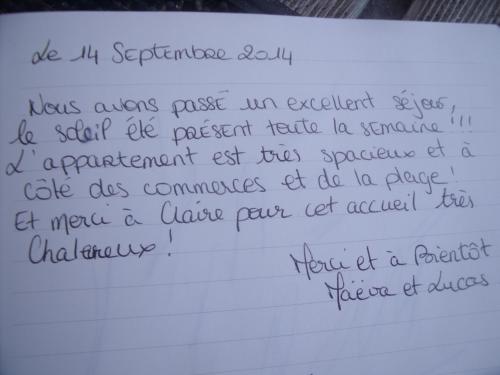 Le 14 Septembre 2014
Nous avons passé un excellent séjour,
le soleil été présent toute la semaine !!!
L'appartement est très spacieux et à
côté des commerces et de la plage !
Et merci à Claire pour cet accueil très
Chalereux !
Merci et à Bientôt
Maëva et Lucas